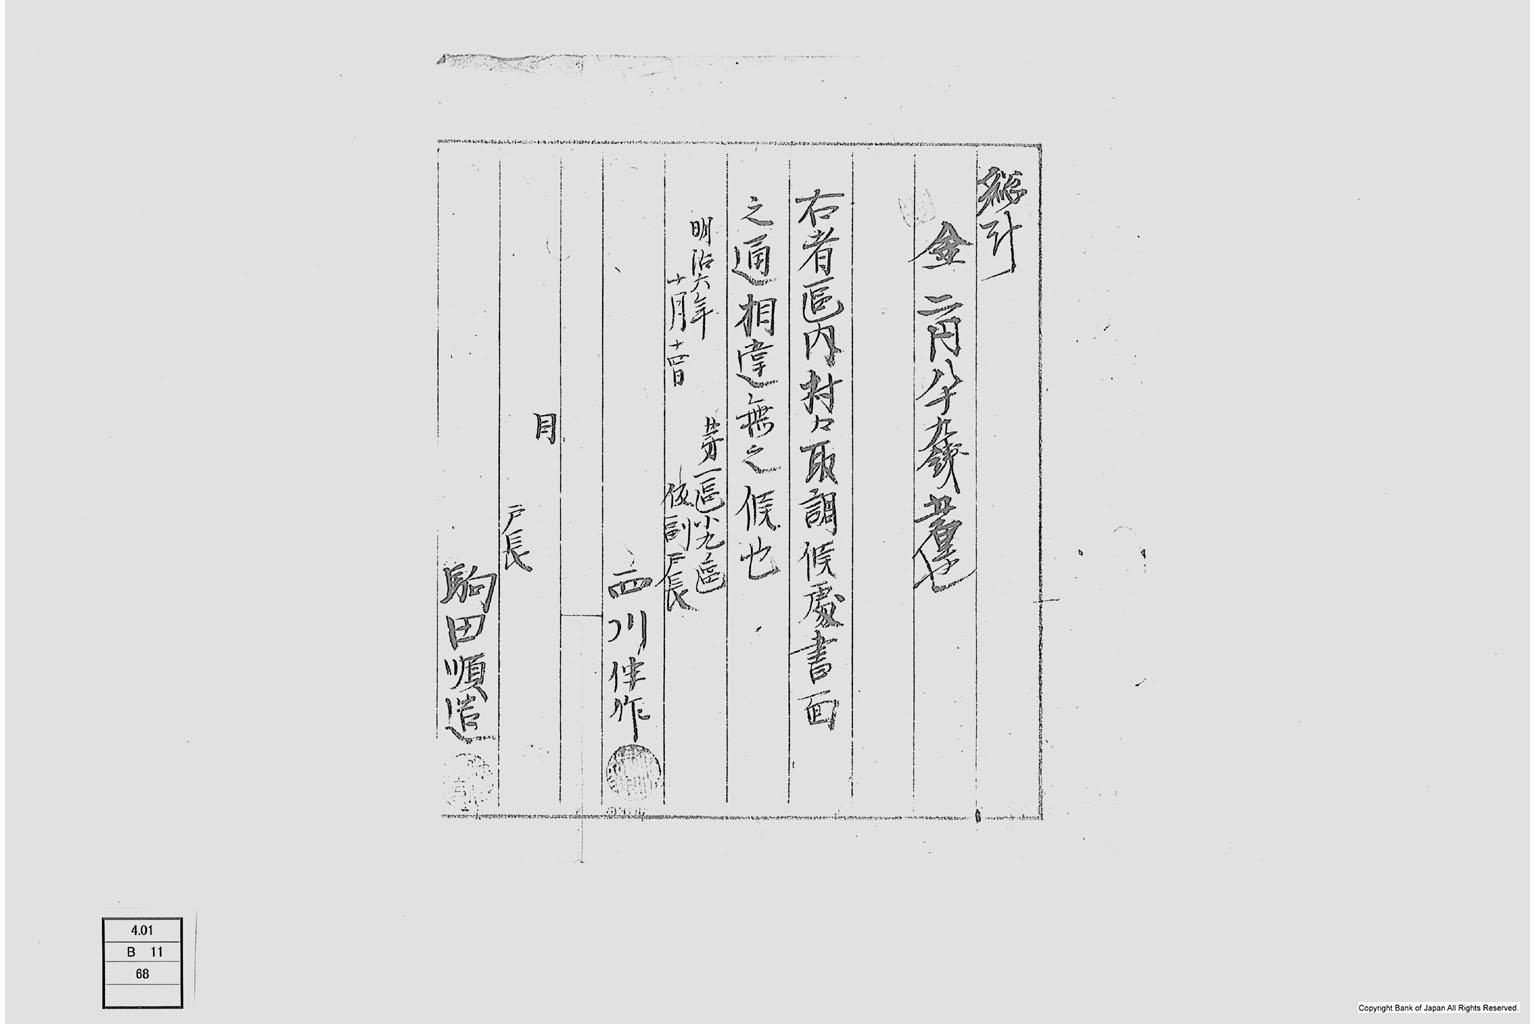 総計
金二円八十九銭
右者區内村々取調候處書面
之通相違無之候也
明治六年
十月十四日
第一區小九區
副戸長
西川伴作
戸長
駒田順造
4.01
B 11
68
Copyright Bank of Japan All Rights Reserved.